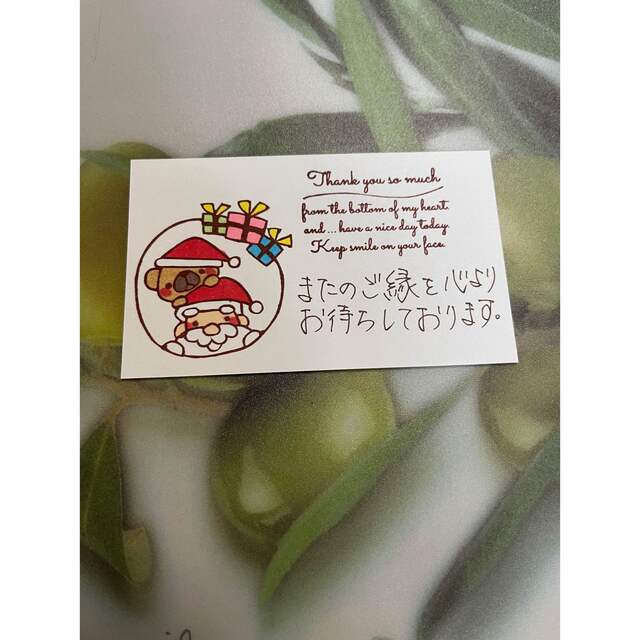 Thank you so much
from the bottom of my heart.
and ... have a nice day today.
Keep smile on your face.
またのご縁を心より
お待ちしております。